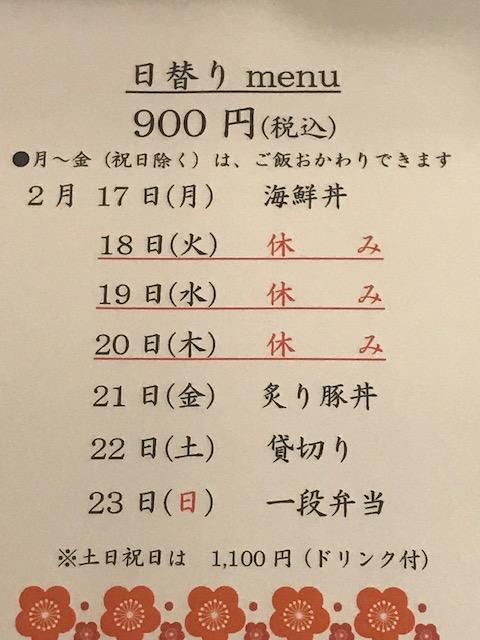 日替り menu
900 円(税込)
●月～金（祝日除く）は、ご飯おかわりできます
2月 17日(月) 海鮮丼
18日(火) 休み
19日(水) 休み
20日(木) 休み
21日(金) 炙り豚丼
22日(土) 貸切り
23日(日) 一段弁当
※土日祝日は 1,100円（ドリンク付）